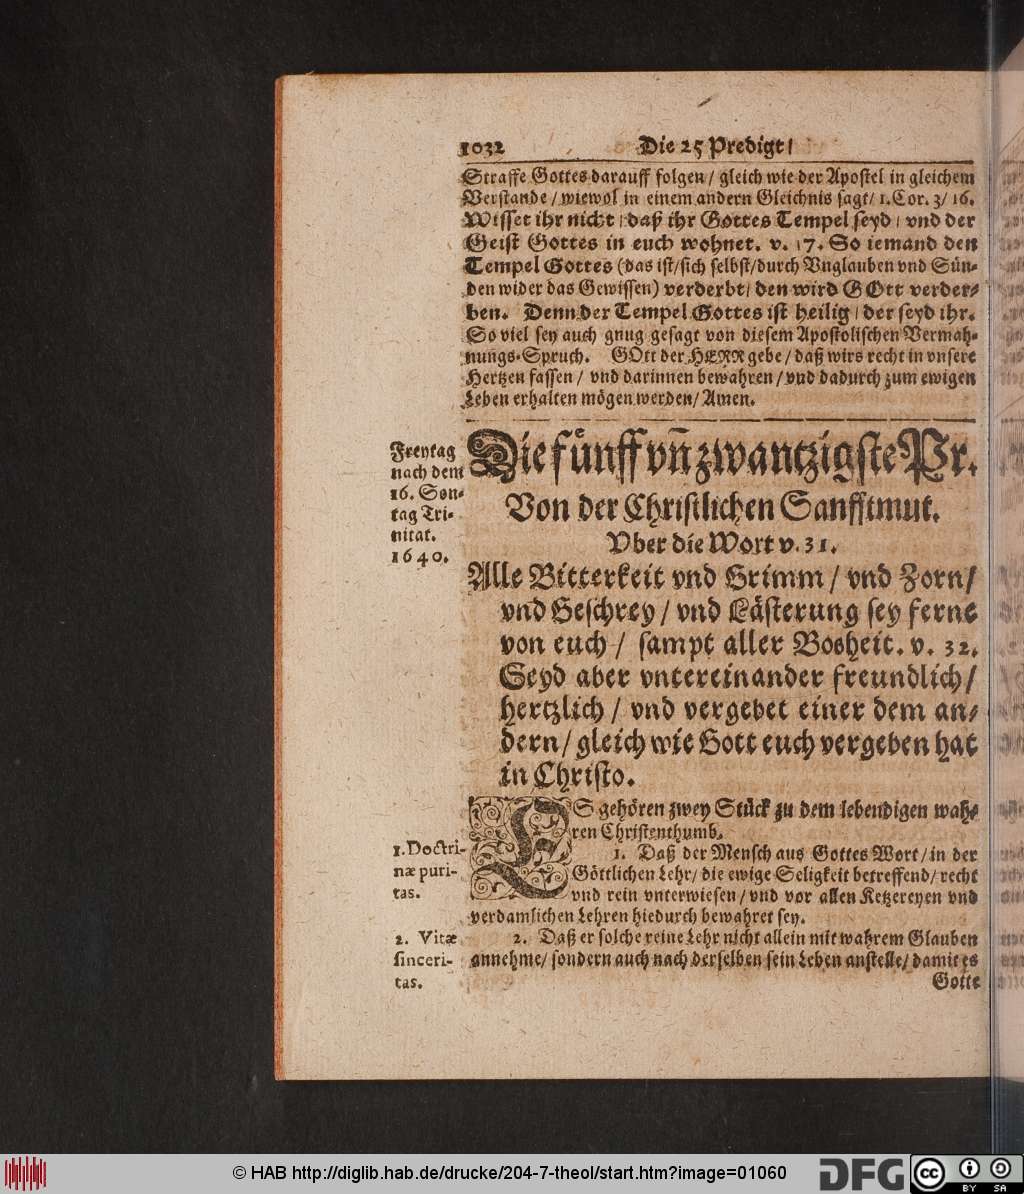 1032 Die 25 Predigt/
Straffe Gottes darauff folgen / gleich wie der Apostel in gleichem
Verstande / wiewol in einem andern Gleichnis sagt / 1. Cor. 3/ 16.
Wisset ihr nicht / daß ihr Gottes Tempel seyd / vnd der
Geist Gottes in euch wohnet. v. 17. So iemand den
Tempel Gottes (das ist/sich selbst/durch Vnglauben vnd Sün-
den wider das Gewissen) verderbt/ den wird GOtt verder-
ben. Denn der Tempel Gottes ist heilig / der seyd ihr.
So viel sey auch gnug gesagt von diesem Apostolischen Vermah-
nungs-Spruch. GOtt der HERR gebe / daß wirs recht in vnsere
Hertzen fassen / vnd darinnen bewahren / vnd dadurch zum ewigen
Leben erhalten mögen werden/ Amen.
Freytag
nach dem
16. Son-
tag Tri-
nitat.
1640.
Die fuͤnff vñ zwantzigste Pr.
Von der Christlichen Sanfftmut.
Vber die Wort v. 31.
Alle Bitterkeit vnd Grimm / vnd Zorn/
vnd Geschrey / vnd Lästerung sey ferne
von euch / sampt aller Bosheit. v. 32.
Seyd aber vntereinander freundlich/
hertzlich / vnd vergebet einer dem an-
dern / gleich wie Gott euch vergeben hat
in Christo.
ES gehören zwey Stück zu dem lebendigen wah-
ren Christenthumb.
1. Doctri-
næ puri-
tas.
1. Daß der Mensch aus Gottes Wort / in der
Göttlichen Lehr/ die ewige Seligkeit betreffend/ recht
vnd rein vnterwiesen / vnd vor allen Ketzereyen vnd
verdamlichen Lehren hiedurch bewahret sey.
2. Vitæ
sinceri-
tas.
2. Daß er solche reine Lehr nicht allein mit wahrem Glauben
annehme/ sondern auch nach derselben sein Leben anstelle/ damit es
Gotte
© HAB http://diglib.hab.de/drucke/204-7-theol/start.htm?image=01060
DFG
cc
BY SA